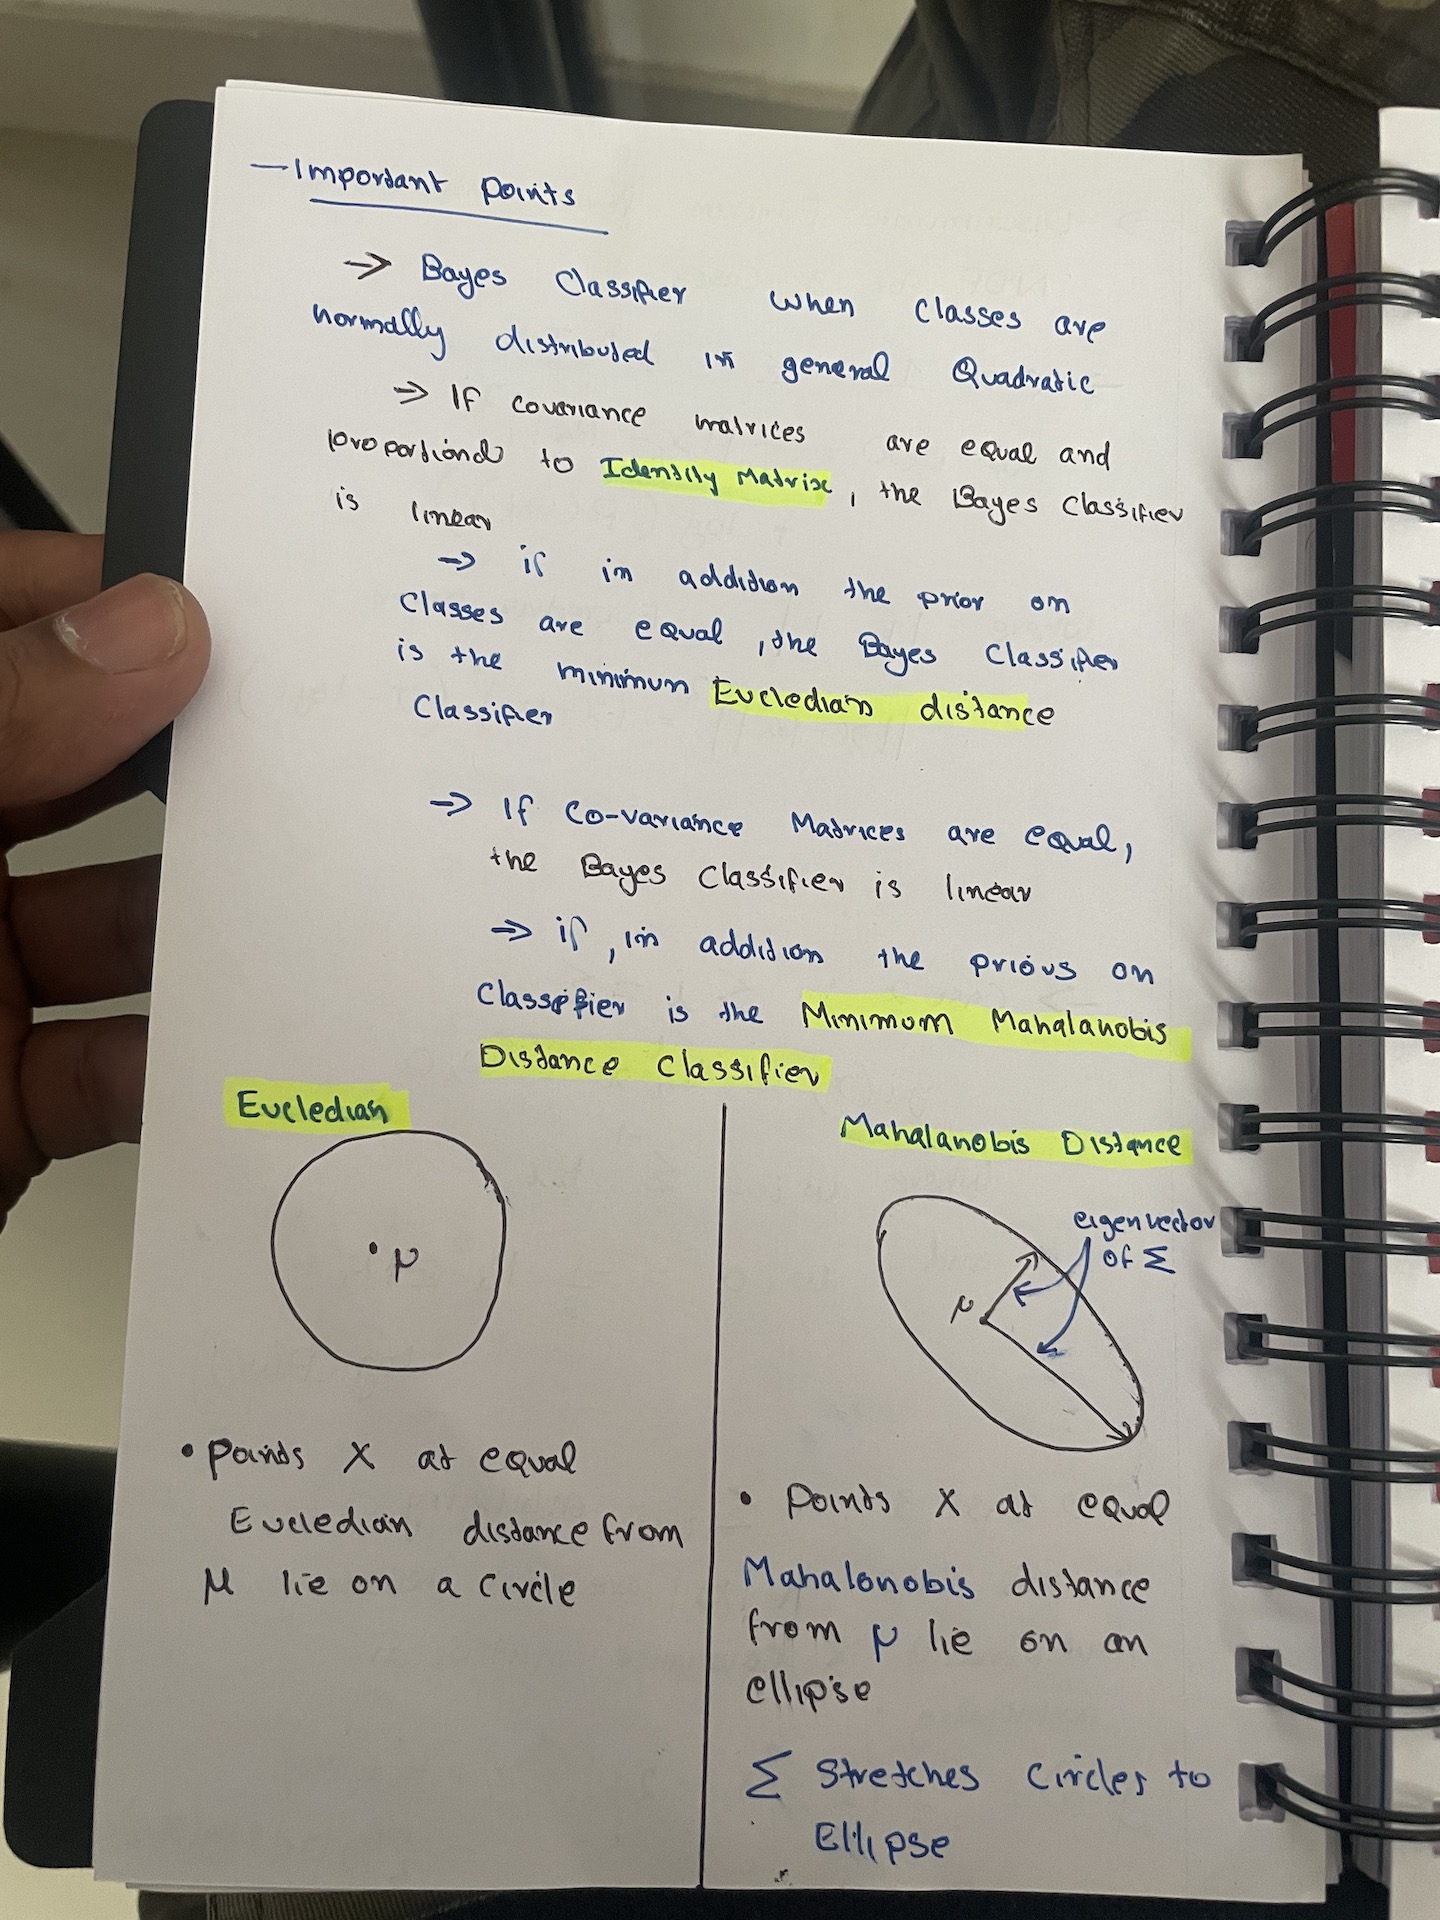 — Important Points
→ Bayes Classifier when classes are
normally distributed in general Quadratic
→ If covariance matrices are equal and
proportional to Identity Matrix, the Bayes Classifier
is linear
→ if in addition the prior on
Classes are equal, the Bayes Classifier
is the minimum Eucledian distance
Classifier
→ If Co-variance Matrices are equal,
the Bayes Classifier is linear
→ if, in addition the prious on
Classifier is the Minimum Mahalanobis
Distance Classifier
Eucledian
μ
• Points X at equal
Eucledian distance from
μ lie on a circle
Mahalanobis Distance
eigenvector
of Σ
μ
• Points X at equal
Mahalonobis distance
from μ lie on an
ellipse
Σ Stretches Circles to
Ellipse